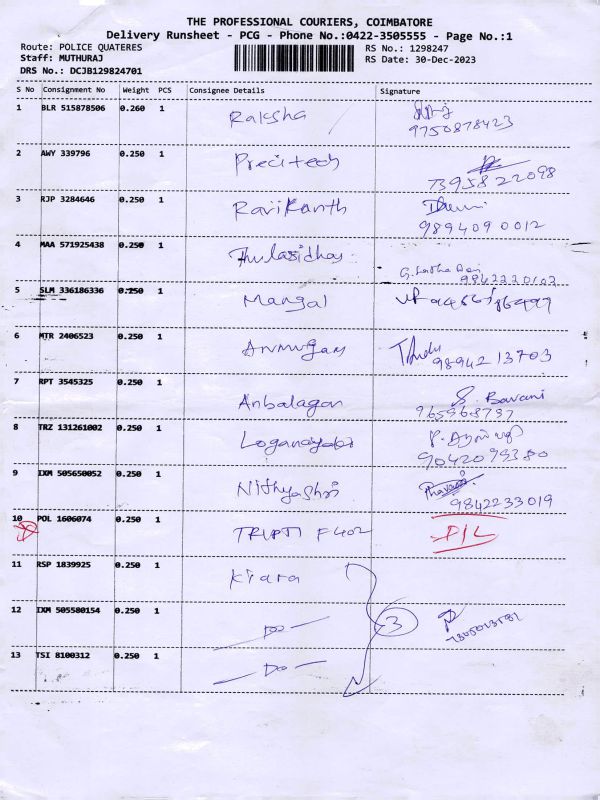 THE PROFESSIONAL COURIERS, COIMBATORE
Delivery Runsheet - PCG - Phone No.:0422-3505555 - Page No.:1
Route: POLICE QUATERES RS No.: 1298247
Staff: MUTHURAJ RS Date: 30-Dec-2023
DRS No.: DCJB129824701
S No Consignment No Weight PCS Consignee Details Signature
1 BLR 515878506 0.260 1 Raksha
9750878423
2 AWY 339796 0.250 1 Precitech
73958 22098
3 RJP 3284646 0.250 1 Ravikanth
989409 0012
4 MAA 571925438 0.250 1 Thulasidhas
5 SLM 336186336 0.250 1 Mangal
6 MTR 2406523 0.250 1 Arumugam
98942 13703
7 RPT 3545325 0.250 1 Anbalagan S. Bavani
8 TRZ 131261002 0.250 1
9 IXM 505650052 0.250 1 Nithyashri
9842233019
10 POL 1606074 0.250 1 TRUPTI F402 D/L
11 RSP 1839925 0.250 1 Kiara
12 IXM 505580154 0.250 1 — Do — 3
13 TSI 8100312 0.250 1 — Do —